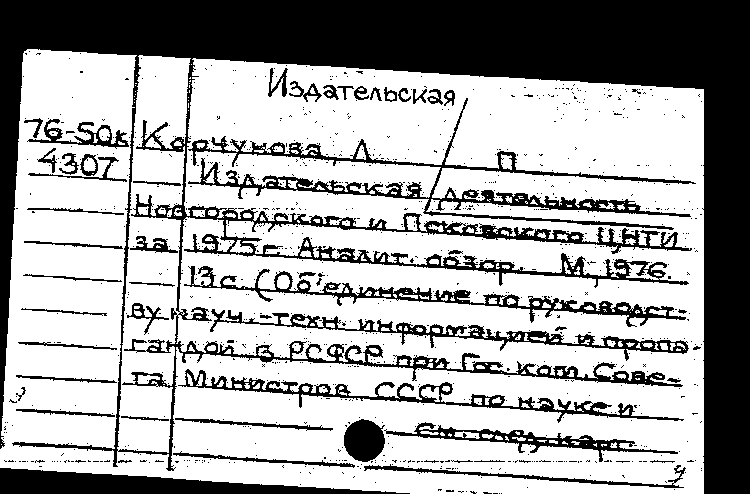 Издательская
76-50к Корчунова, Л. П
4307 Издательская деятельность
Новгородского и Псковского ЦНТИ
за 1975г. Аналит. обзор. М., 1976.
13с. (Объединение по руководст-
ву науч.-техн. информацией и пропа-
гандой в РСФСР при Гос. ком. Сове-
та Министров СССР по науке и
см. след. карт.